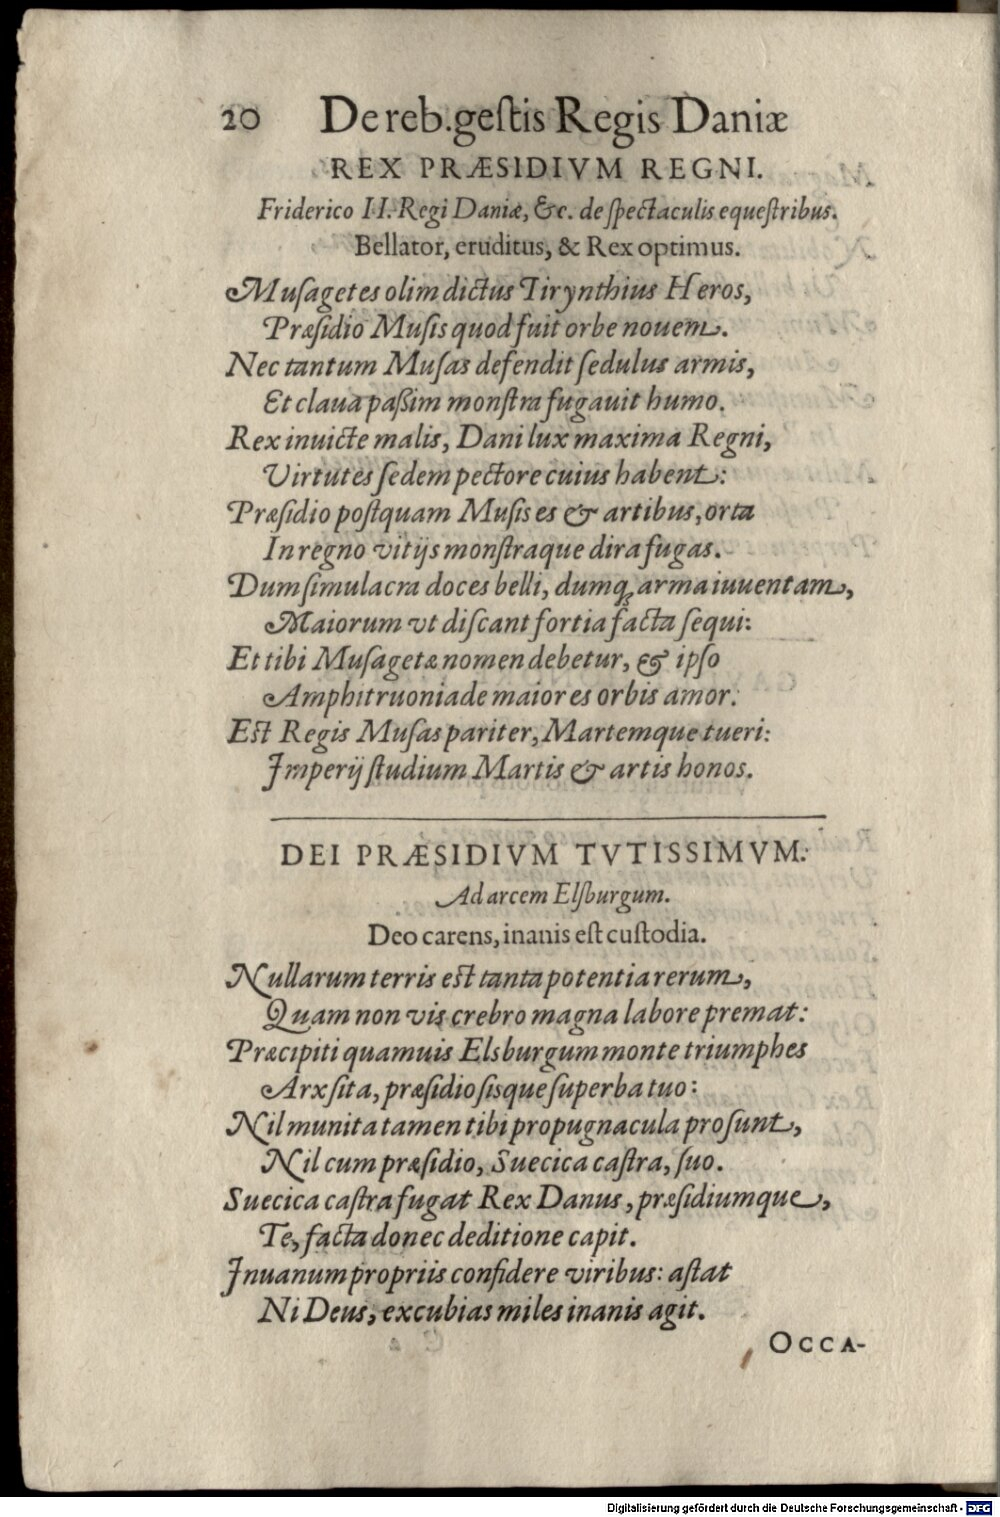 20 De reb. gestis Regis Daniæ
REX PRÆSIDIVM REGNI.
Friderico II. Regi Daniæ, &c. de spectaculis equestribus.
Bellator, eruditus, & Rex optimus.
Musagetes olim dictus Tirynthius Heros,
Præsidio Musis quod fuit orbe nouem.
Nec tantum Musas defendit sedulus armis,
Et claua paßim monstra fugauit humo.
Rex inuicte malis, Dani lux maxima Regni,
Virtutes sedem pectore cuius habent:
Præsidio postquam Musis es & artibus, orta
In regno vitijs monstraque dira fugas.
Dum simulacra doces belli, dumq; arma iuuentam,
Maiorum vt discant fortia facta sequi:
Et tibi Musagetæ nomen debetur, & ipso
Amphitruoniade maior es orbis amor.
Est Regis Musas pariter, Martemque tueri:
Imperij studium Martis & artis honos.
DEI PRÆSIDIVM TVTISSIMVM.
Ad arcem Elsburgum.
Deo carens, inanis est custodia.
Nullarum terris est tanta potentia rerum,
Quam non vis crebro magna labore premat:
Præcipiti quamuis Elsburgum monte triumphes
Arx sita, præsidio sisque superba tuo:
Nil munita tamen tibi propugnacula prosunt,
Nil cum præsidio, Suecica castra, suo.
Suecica castra fugat Rex Danus, præsidiumque,
Te, facta donec deditione capit.
Inuanum propriis confidere viribus: astat
Ni Deus, excubias miles inanis agit.
OCCA-
Digitalisierung gefördert durch die Deutsche Forschungsgemeinschaft - DFG